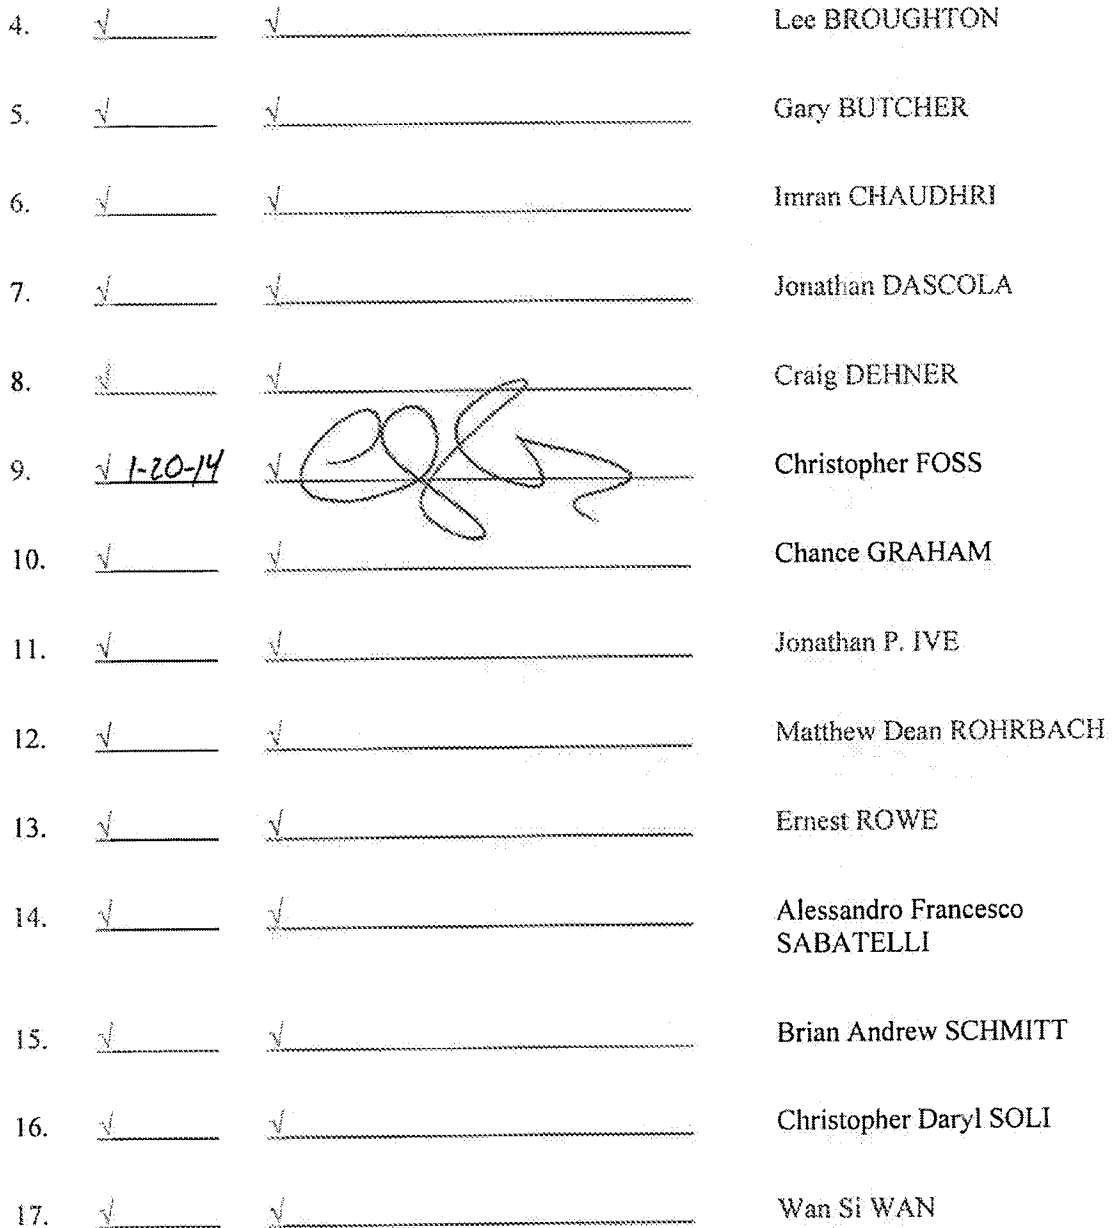 4. √ √ Lee BROUGHTON
5. √ √ Gary BUTCHER
6. √ √ Imran CHAUDHRI
7. √ √ Jonathan DASCOLA
8. √ √ Craig DEHNER
9. √ 1-20-14 √ Christopher FOSS
10. √ √ Chance GRAHAM
11. √ √ Jonathan P. IVE
12. √ √ Matthew Dean ROHRBACH
13. √ √ Ernest ROWE
14. √ √ Alessandro Francesco
SABATELLI
15. √ √ Brian Andrew SCHMITT
16. √ √ Christopher Daryl SOLI
17. √ √ Wan Si WAN